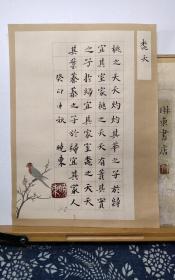 桃夭
桃之夭夭灼灼其华之子於歸
宜其室家桃之夭夭有蕡其實
之子於歸宜其家室桃之夭夭
其葉蓁蓁之子於歸宜其家人
癸卯年秋 曉東
琳東書店